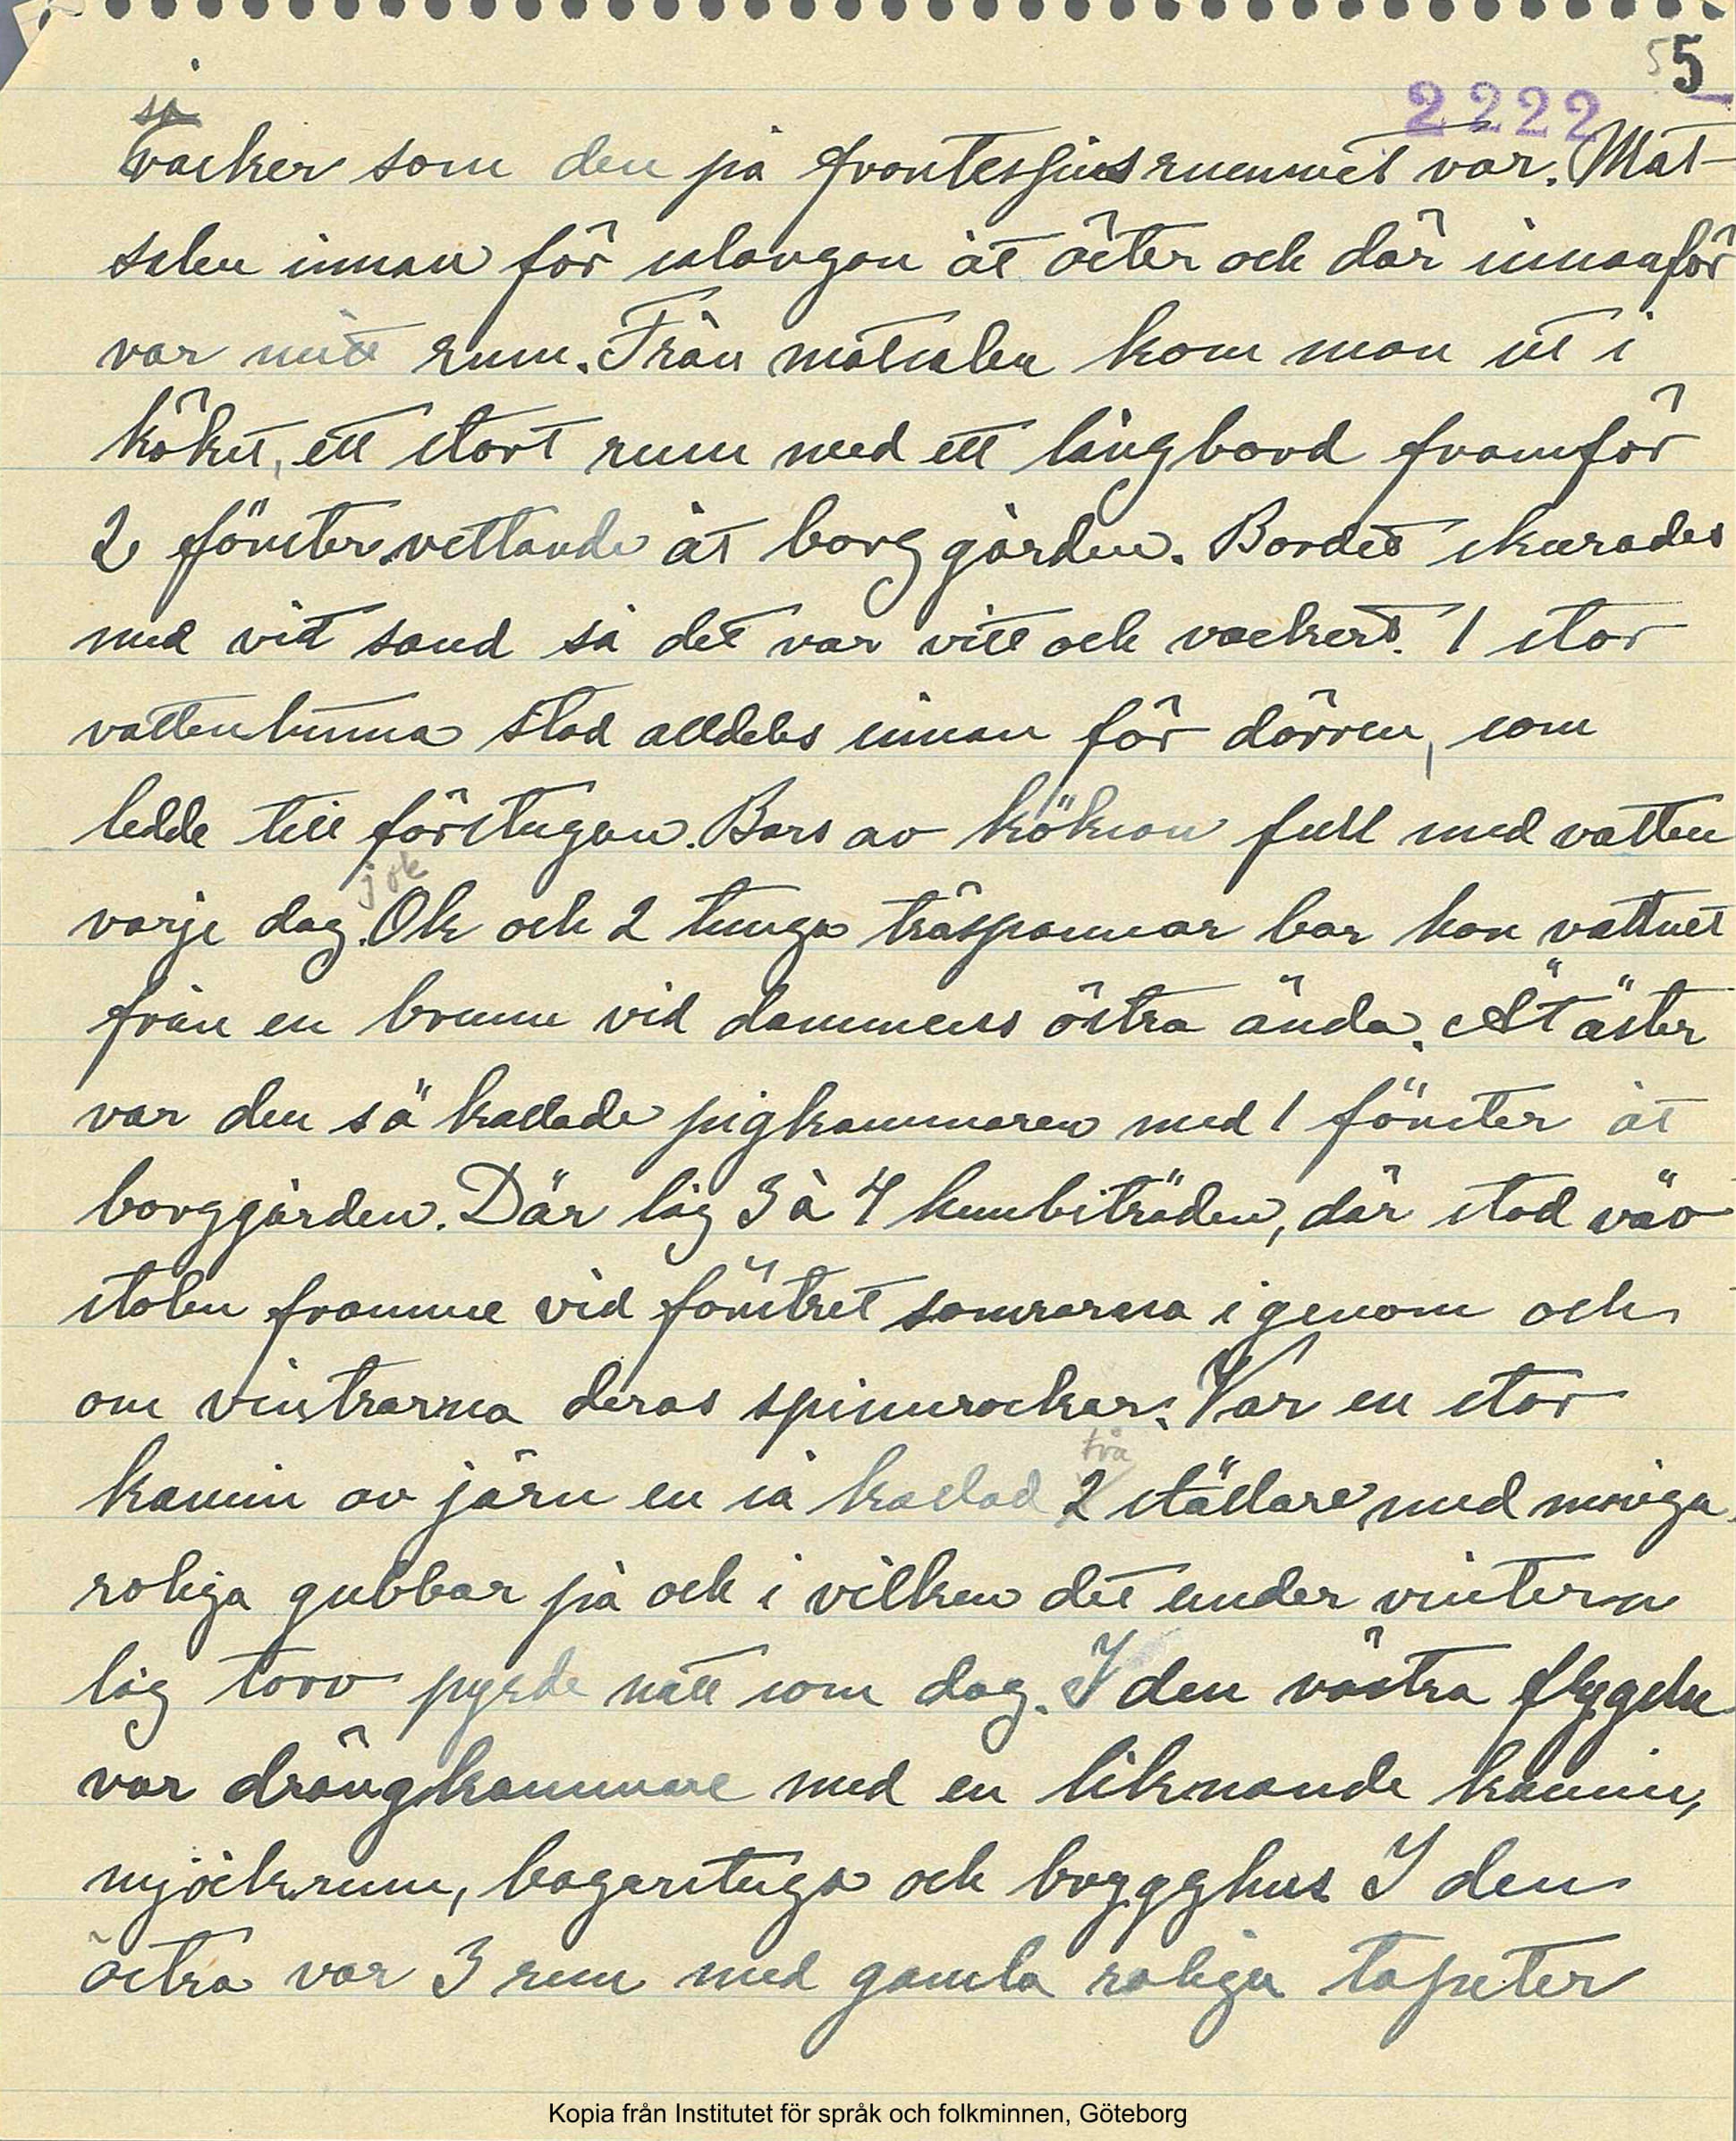 5 5
2222
så
vacker som den på frontespisrummet var. Mat-
salen innan för salongen åt öster och där innanför
var mitt rum. Från matsalen kom man ut i
köket, ett stort rum med ett långbord framför
2 fönster vettande åt borggården. Bordet skurades
med vit sand så det var vitt och vackert. 1 stor
vattentunna stod alldeles innan för dörren, som
ledde till förstugan. Bars av köksan full med vatten
jok
varje dag. Ok och 2 tunga träspannar bar hon vattnet
från en brunn vid dammens östra ända. Åt äster
var den så kallade pigkammaren med 1 fönster åt
borggården. Där låg 3 à 4 hembiträden, där stod väv
stolen framme vid fönstret somrarna igenom och
om vintrarna deras spinnrockar. Var en stor
två
kamin av järn en så kallad 2 ställare med många
roliga gubbar på och i vilken det under vintern
låg torv pyrde natt som dag. I den västra flygeln
var drängkammare med en liknande kamin,
mjölkrum, bagarstuga och brygghus I den
östra var 3 rum med gamla roliga tapeter
Kopia från Institutet för språk och folkminnen, Göteborg